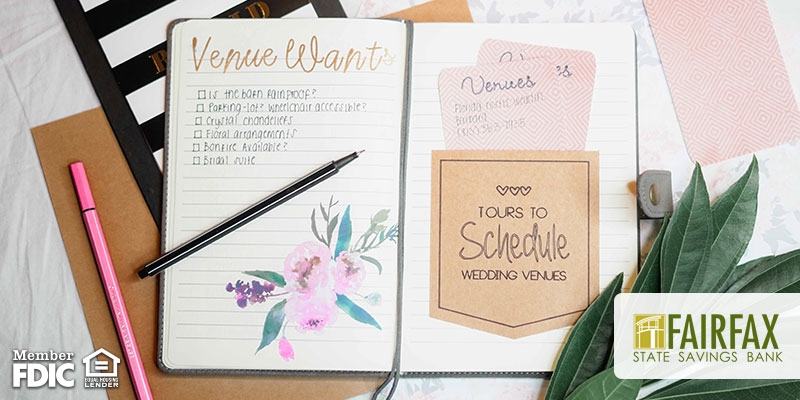 Venue Want's
Is the barn rainproof?
Parking-lot? Wheelchair accessible?
Crystal chandeliers
Floral arrangements
Bonfire Available?
Bridal suite
Venues
TOURS TO
Schedule
WEDDING VENUES
Member
FDIC
EQUAL HOUSING
LENDER
FAIRFAX
STATE SAVINGS BANK